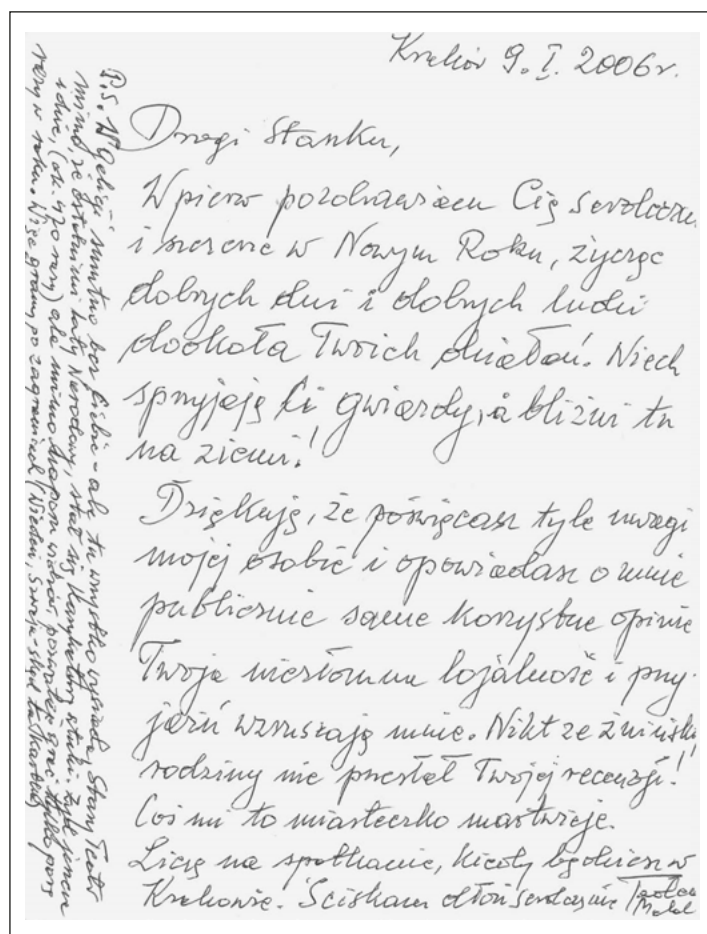 Kraków 9. I. 2006r.
Drogi Stanku,
Wpierw pozdrawiam Cię serdecznie
i szczerze w Nowym Roku, życząc
dobrych dni i dobrych ludzi
dookoła Twoich działań. Niech
sprzyjają Ci gwiazdy, a bliźni tu
na ziemi!
Dziękuję, że poświęcasz tyle uwagi
mojej osobie i opowiadasz o mnie
publicznie same korzystne opinie
Twoja niezłomna lojalność i przy-
jaźń wzruszają mnie. Nikt ze
rodziny nie przesłał Twojej recenzji!
Coś mi to miasteczko martwieje.
Liczę na spotkanie, kiedy będziesz w
Krakowie. Ściskam dłoń serdecznie
P.S. W Galicji smutno bez Ciebie - ale tu wszystko Stary Teatr
mimo, że ostatnimi laty Narodowy, stał się sztuki. jeszcze
(ok. 470 razy) ale mimo naporu widzów, pozwala grać tylko parę
razy w roku. Więc gramy po zagranicach (Wiedeń,